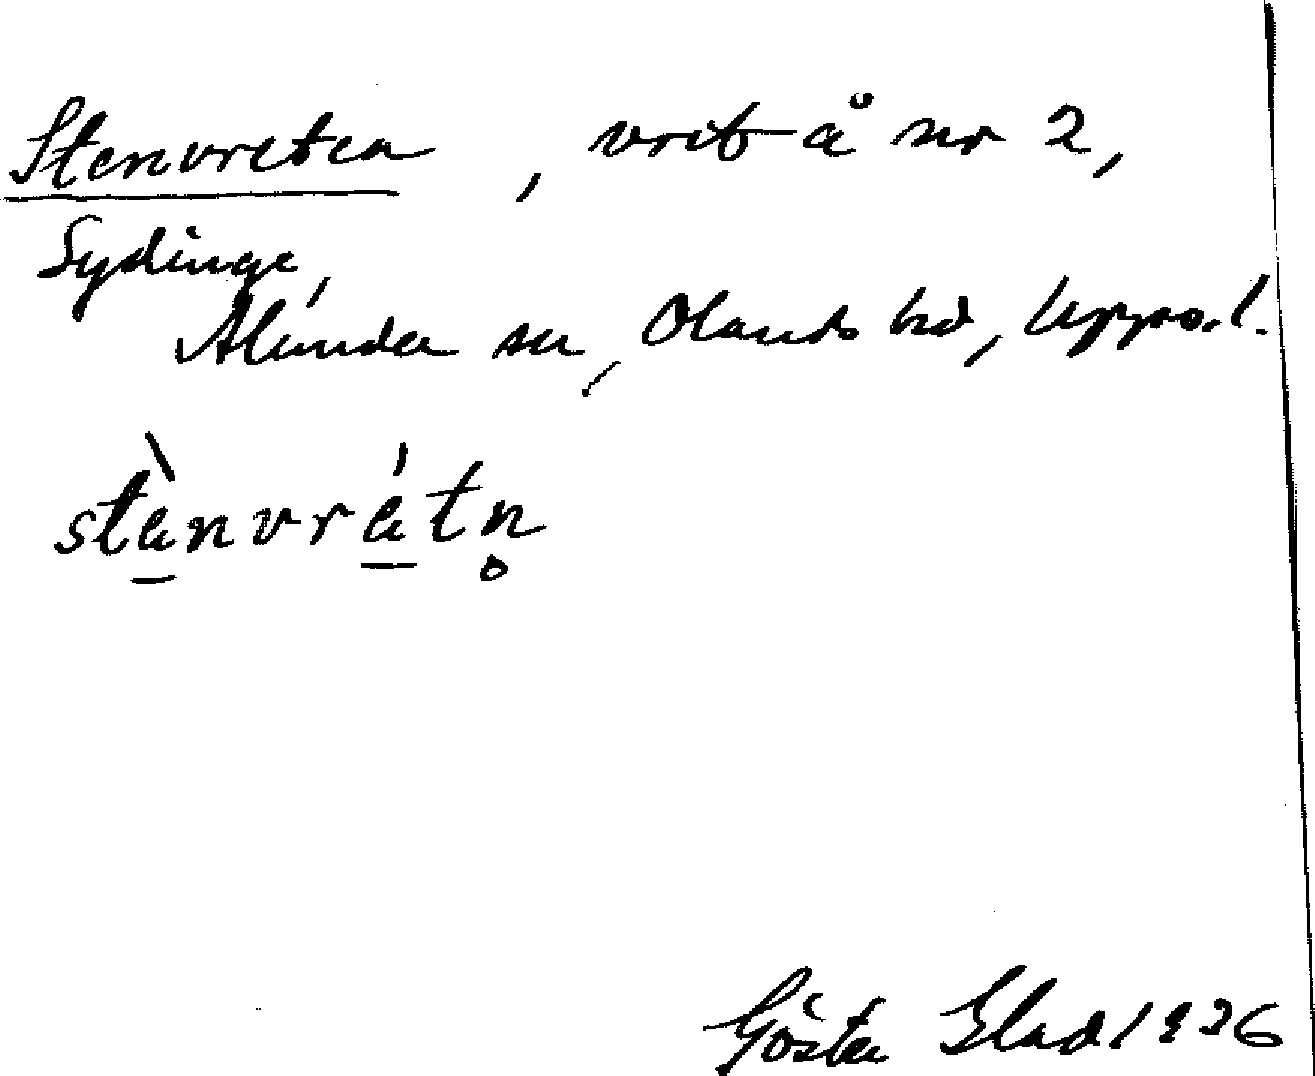 Stenvreten, vret å nr 2,
Sydinge,
Alunda sn, Olands hd, Upps. l.
stènvrétn̥
Gösta Glad 1936